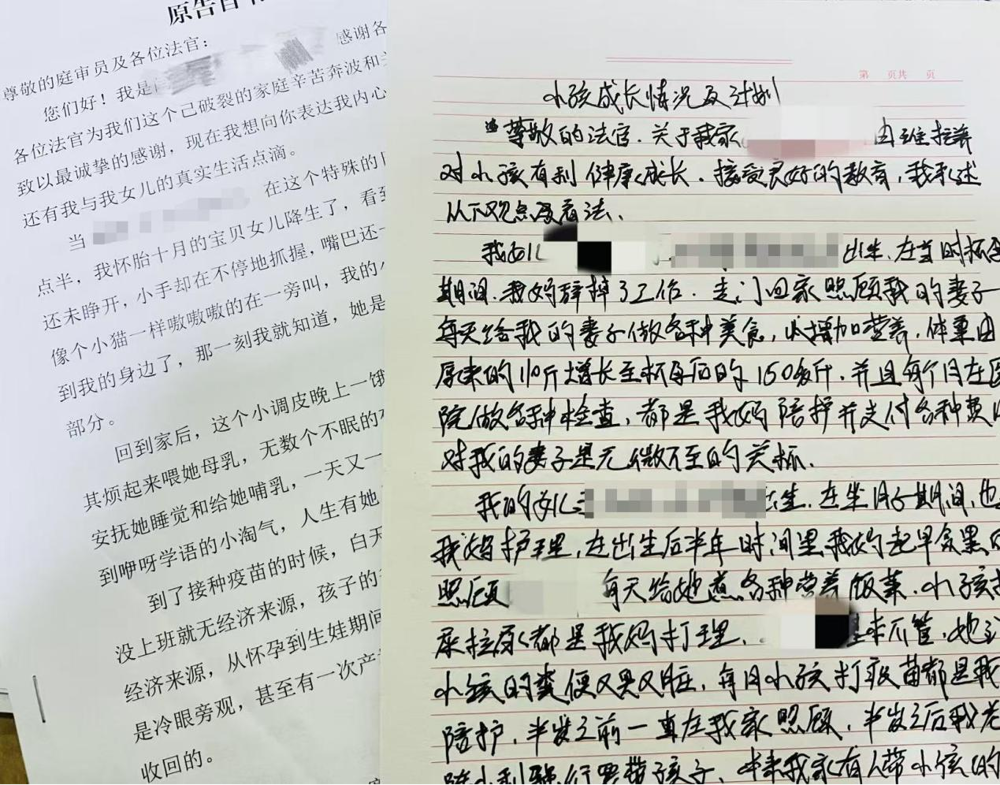 原告自
尊敬的庭审员及各位法官：
您们好！我是
感谢各
各位法官为我们这个已破裂的家庭辛苦奔波和
致以最诚挚的感谢，现在我想向你表达我内心
还有我与我女儿的真实生活点滴。
当
在这个特殊的日
点半，我怀胎十月的宝贝女儿降生了，看到
还未睁开，小手却在不停地抓握，嘴巴还一
像个小猫一样嗷嗷嗷的在一旁叫，我的小
到我的身边了，那一刻我就知道，她是
部分。
回到家后，这个小调皮晚上一饿
其烦起来喂她母乳，无数个不眠的
安抚她睡觉和给她哺乳，一天又一
到咿呀学语的小淘气，人生有她
到了接种疫苗的时候，白天
没上班就无经济来源，孩子的
经济来源，从怀孕到生娃期间
是冷眼旁观，甚至有一次产
收回的。
第 页共 页
小孩成长情况及计划
尊敬的法官．关于我家
由谁抚养
对小孩有利健康成长．接受良好的教育，我承述
以下观点及看法、
我女儿
出生．在当时怀孕
期间．我妈辞掉了工作．专门回家照顾我的妻子
每天给我的妻子做各种美食，以增加营养．体重由
原来的110斤增长至怀孕后的150多斤．并且每个月在医
院做各种检查，都是我妈陪护并支付各种费
对我的妻子是无微不至的关怀．
我的女儿
出生．在坐月子期间，也
我妈护理，在出生后半年时间里我妈起早贪黑
照顾
每天给她煮各种营养饭菜．小孩
屎拉尿都是我妈打理．
从来不管．她
小孩的粪便又臭又脏，每月小孩打疫苗都是我
陪护．半岁之前一直在我家照顾．半岁之后我
带孩子．本来我家有人带小孩的